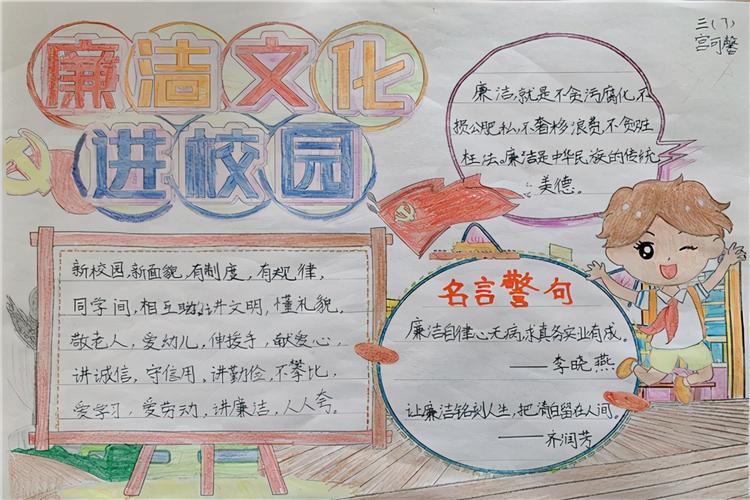 廉洁文化
进校园
三(1)
宫可馨
廉洁,就是不贪污腐化,不
损公肥私,不奢移浪费,不贪赃
枉法。廉洁是中华民族的传统
美德。
新校园,新面貌,有制度,有规律,
同学间,相互助,讲文明,懂礼貌,
敬老人,爱幼儿,伸援手,献爱心,
讲诚信,守信用,讲勤俭,不攀比,
爱学习,爱劳动,讲廉洁,人人夸。
名言警句
廉洁自律心无病,求真务实业有成。
——李晓燕
让廉洁铭刻人生,把清白留在人间。
——齐润芳